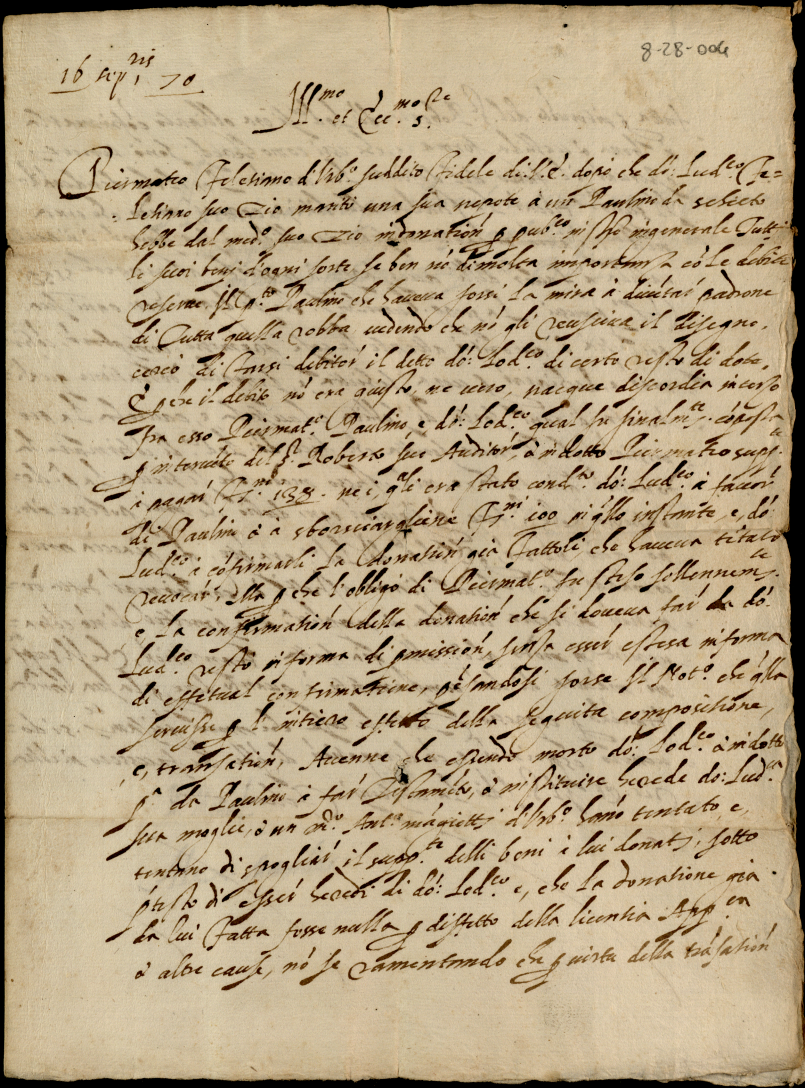 8-28-004
16 sep^ris 70
Ill^mo et Ecc^mo S^re
Piermatteo Felesinno d'Urb^o suddito fidele di S. E. dopò che do: Lud^co Fe=
lesinno suo Zio maritò una sua nepote à un Paulino da
hebbe dal med^o suo Zio donatioń p pub^co in generale Tutti
li suoi beni d'ogni sorte se ben nó di molta importanza có le debite
reserve. Il p^to Paulino che haveva forsi la mira à diventar padrone
di tutta quella robba vedendo che nó gli reusciva il disegno,
cercò di farsi debitor il detto dó: Lod^co di certo resto di dote,
E pche il debito nó era giusto, ne vero, nacque discordia
fra esso Piermat^o Paulino e dó: Lod^co qual fu finalm^te cóposta
p intervéto del S^r Roberto suo Auditor, è indotto Piermatteo supp^te
à pagar 138 ne i q^ali era stato cond^to dó: Lud^co à favor
di Paulino è à sborsciargliene 100 in q̃llo instante, e, dó:
Lud^co à cófirmarli la donatioń già fattoli che haveva tétato
revocar, Ma p che l'obligo di Piermat^o fu steso sollennem^te
e la confirmatioń della donatioń che si doveva far da dó:
Lud^co restò in forma di pmissioń, senza esser estesa in forma
di effettual confirmatione, pésandosi forse il Not^o che q̃lla
servisse p l'intiero effetto della seguita compositione,
e, transatioń, Avenne che essendo morto dó: Lod^co è indotto
p^a da Paulino à far Testaméto, è instituire herede do: Lud^ca
sua moglie, è un m^o Ant^o d'Urb^o hanó tentato, e,
tentano di spogliar, il supp^te delli beni à lui donati, sotto
p̃testo di esser heredi di dó: Lod^co e, che la donatione già
da lui fatta fosse nulla p diffetto della licentia App^ta
ò altre cause, nó se ramentando che p virtù della trásatioń